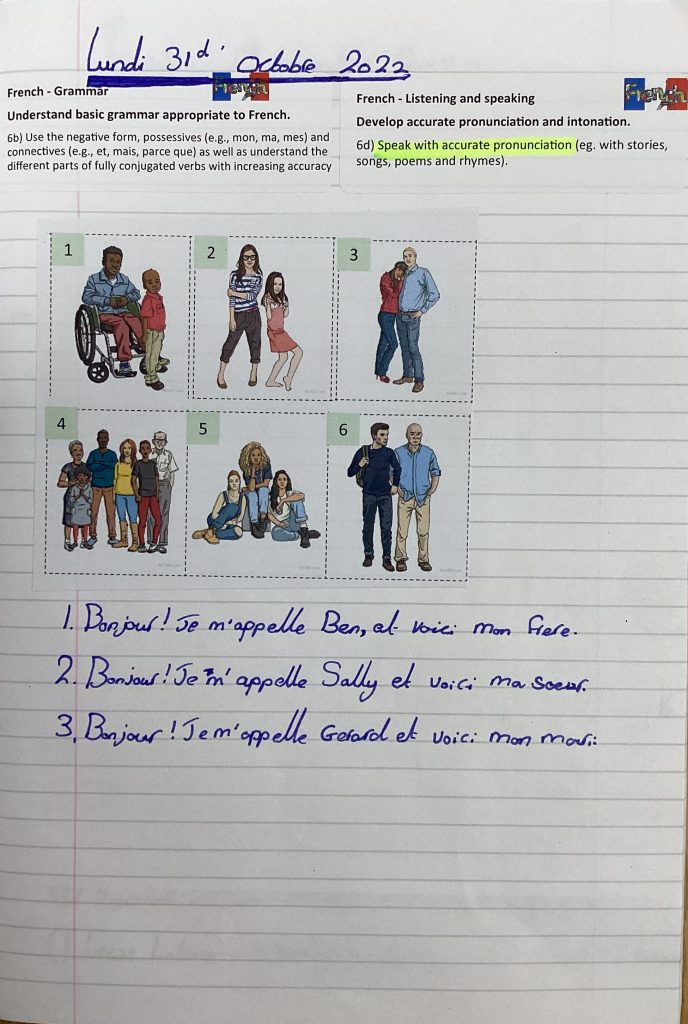 Lundi 31d' Octobre 2022
French - Grammar
French
Understand basic grammar appropriate to French.
6b) Use the negative form, possessives (e.g., mon, ma, mes) and
connectives (e.g., et, mais, parce que) as well as understand the
different parts of fully conjugated verbs with increasing accuracy
French - Listening and speaking
French
Develop accurate pronunciation and intonation.
6d) Speak with accurate pronunciation (eg. with stories,
songs, poems and rhymes).
1 2 3
4 5 6
1. Bonjour! Je m'appelle Ben, et voici mon frere.
2. Bonjour! Je m'appelle Sally et voici ma soeur.
3. Bonjour! Je m'appelle Gerard et voici mon mari.